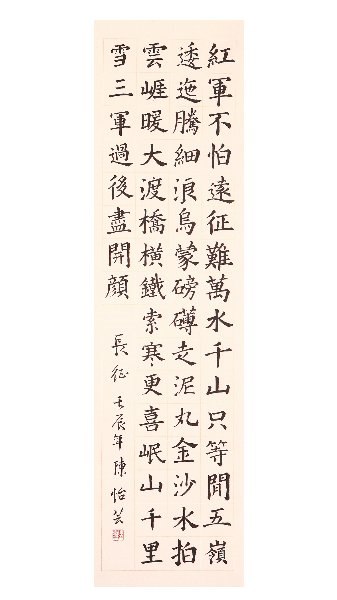 紅軍不怕遠征難萬水千山只等閒五嶺
逶迤騰細浪烏蒙磅礡走泥丸金沙水拍
雲崕暖大渡橋橫鐵索寒更喜岷山千里
雪三軍過後盡開顏
長征 壬辰年陳怡芸